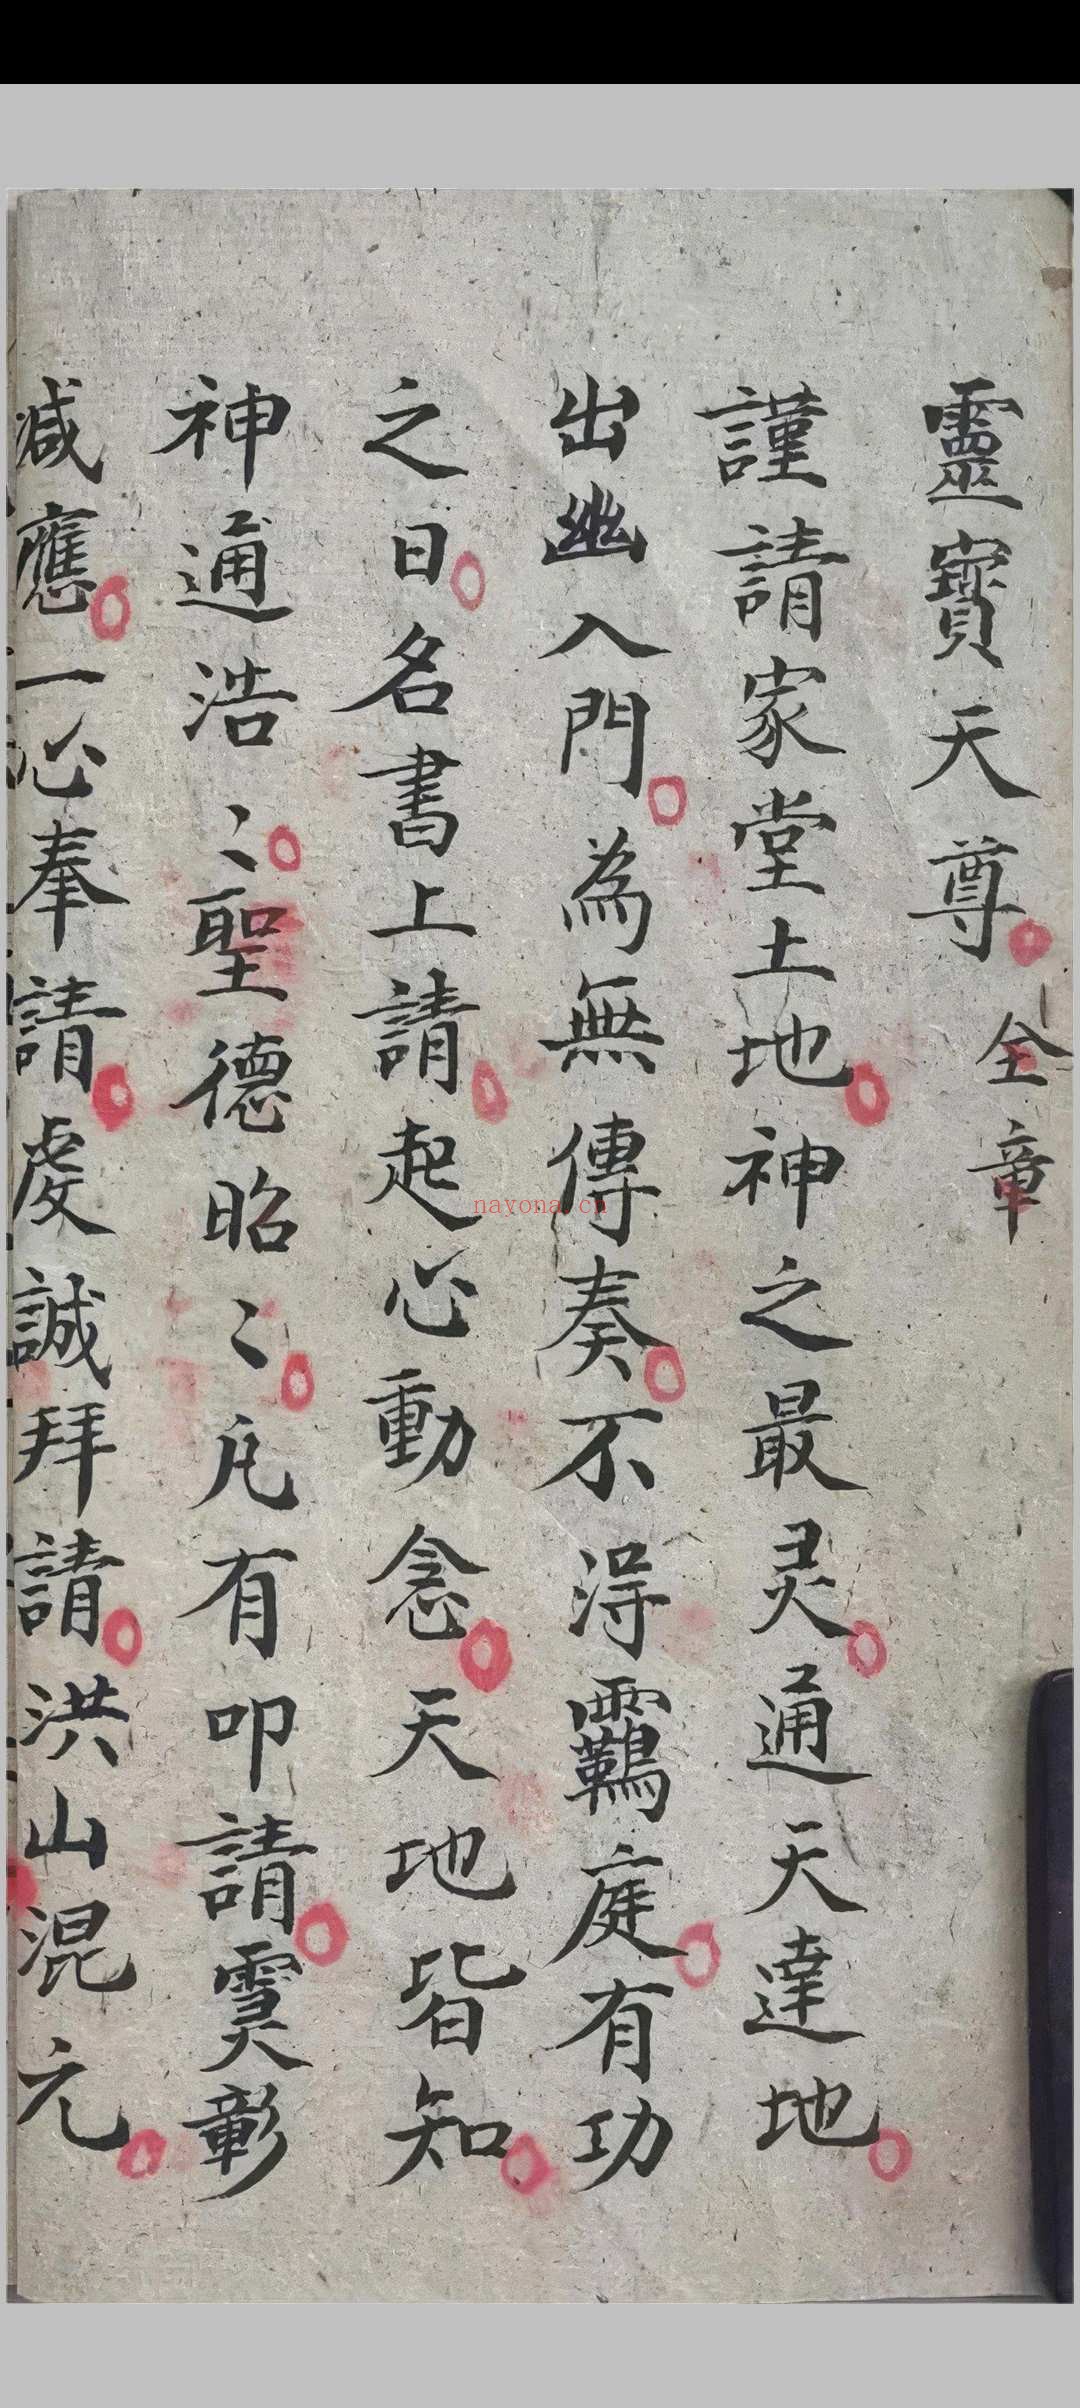 靈寶天尊 全章
謹請家堂土地神之最灵通天達地
出幽入門為無傳奏不淂庭有功
之日名書上請起心動念天地皆知
神通浩〻聖德昭〻凡有叩請彰
减應一心奉請虔誠拜請洪山混元
nayona.cn